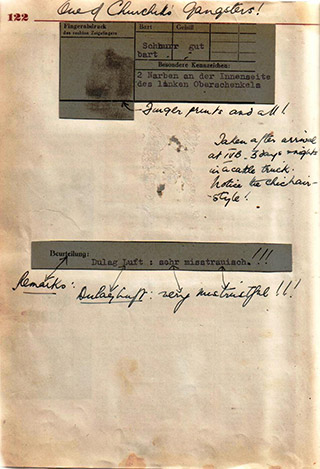 One of Churchill's Gangsters!
122
Fingerabdruck
des rechten Zeigefingers
Bart
Gebiß
Schnurr gut
bart
Besondere Kennzeichen:
2 Narben an der Innenseite
des linken Oberschenkels
Finger prints and all!
Taken after arrival
at IVB. 3 days + nights
in a cattle truck.
Notice the chic hair-
style!
Beurteilung:
Dulag Luft : sehr misstrauisch. !!!
Remarks:
Dulag Luft: very mistrustful !!!